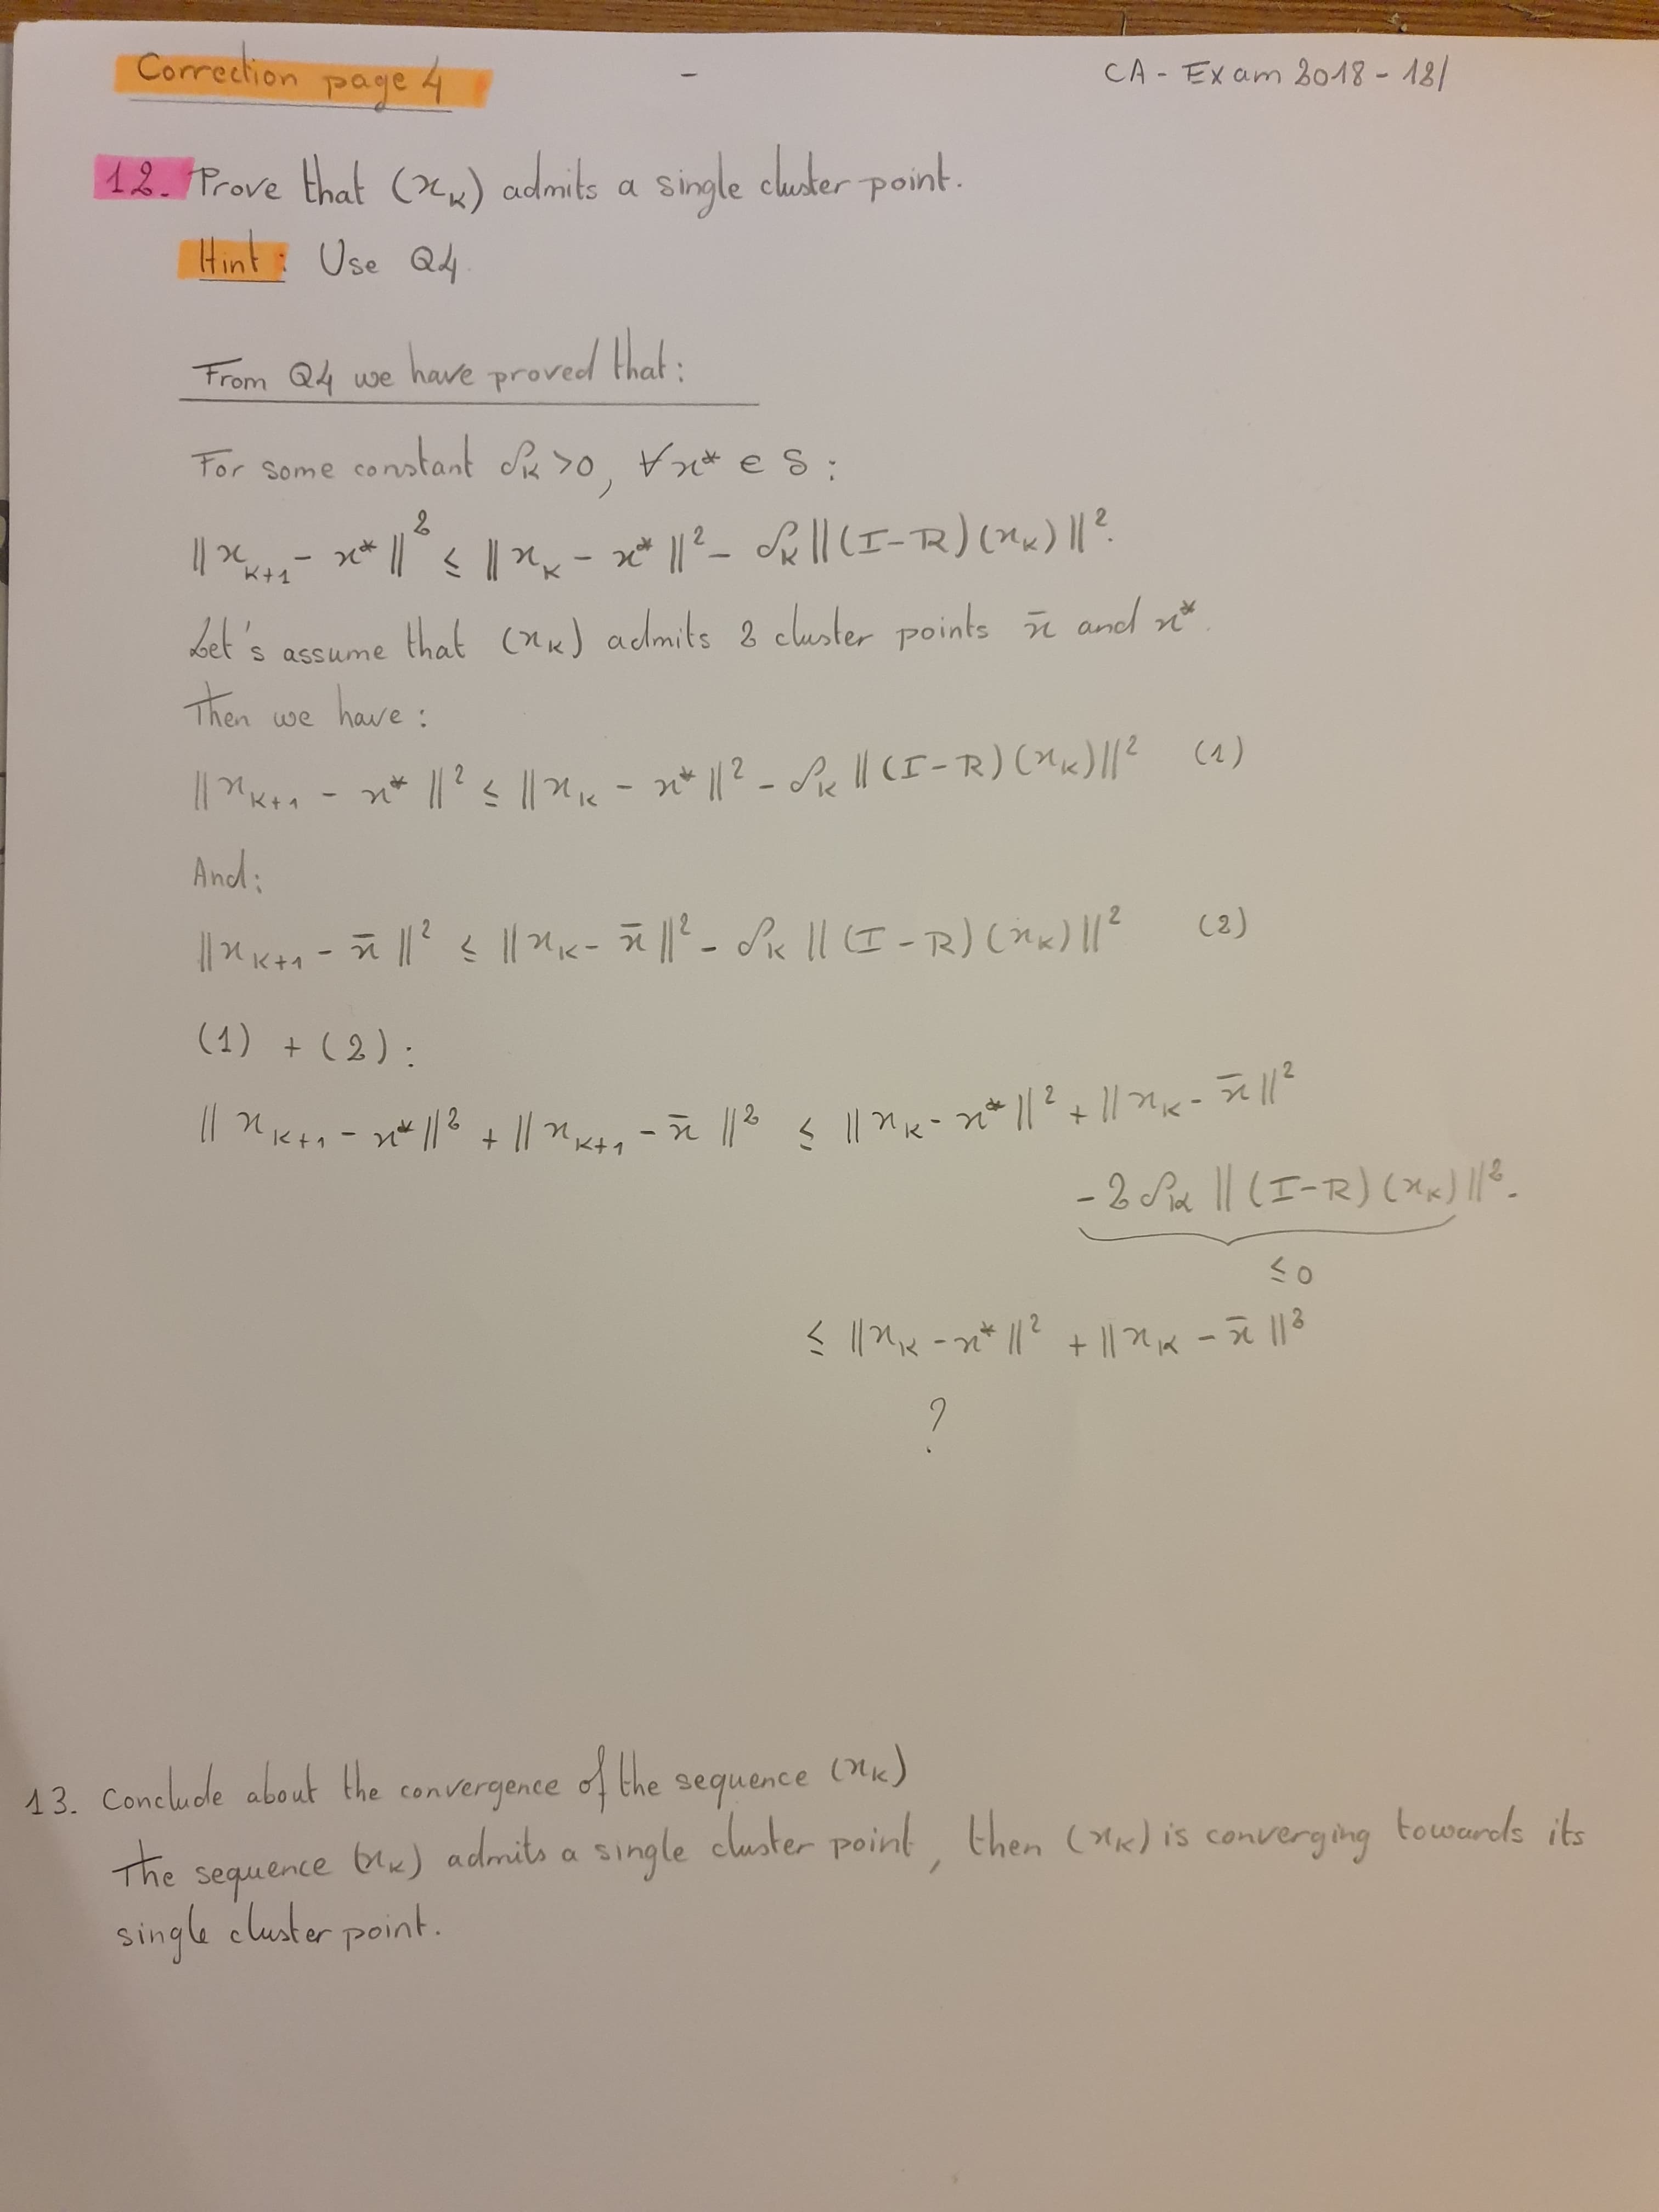 Correction page 4 - CA - Exam 2018 - 12/
12. Prove that (x_K) admits a single cluster point.
Hint: Use Q4.
From Q4 we have proved that:
For some constant δ_K > 0, ∀x* ∈ S:
‖x_{K+1} - x*‖² ≤ ‖x_K - x*‖² - δ_K ‖(I-R)(x_K)‖².
Let's assume that (x_K) admits 2 cluster points x̄ and x*.
Then we have:
‖x_{K+1} - x*‖² ≤ ‖x_K - x*‖² - δ_K ‖(I-R)(x_K)‖² (1)
And:
‖x_{K+1} - x̄‖² ≤ ‖x_K - x̄‖² - δ_K ‖(I-R)(x_K)‖² (2)
(1) + (2):
‖x_{K+1} - x*‖² + ‖x_{K+1} - x̄‖² ≤ ‖x_K - x*‖² + ‖x_K - x̄‖²
- 2 δ_K ‖(I-R)(x_K)‖².
≤ 0
≤ ‖x_K - x*‖² + ‖x_K - x̄‖²
?
13. Conclude about the convergence of the sequence (x_K)
The sequence (x_K) admits a single cluster point, then (x_K) is converging towards its
single cluster point.